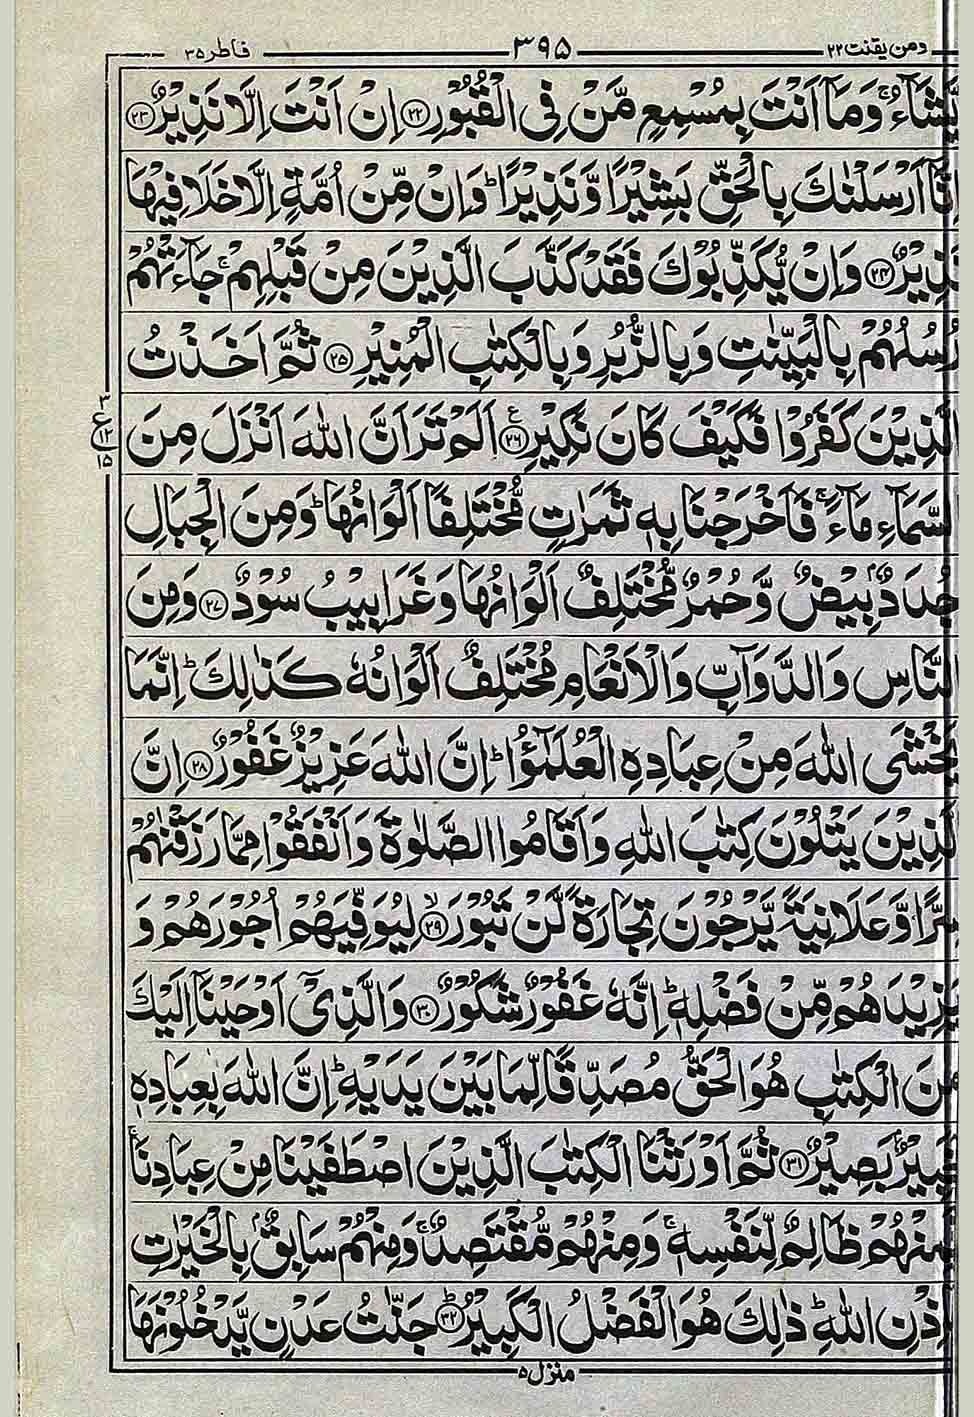 ومن يقنت ۲۲ ۳۹۵ فاطر ۳۵
يَّشَآءُ ۚ وَمَآ اَنْتَ بِمُسْمِعٍ مَّنْ فِى الْقُبُوْرِ ۲۲ اِنْ اَنْتَ اِلَّا نَذِيْرٌ ۲۳
اِنَّآ اَرْسَلْنٰكَ بِالْحَقِّ بَشِيْرًا وَّنَذِيْرًا ؕ وَاِنْ مِّنْ اُمَّةٍ اِلَّا خَلَا فِيْهَا
نَذِيْرٌ ۲۴ وَاِنْ يُّكَذِّبُوْكَ فَقَدْ كَذَّبَ الَّذِيْنَ مِنْ قَبْلِهِمْ ۚ جَآءَتْهُمْ
رُسُلُهُمْ بِالْبَيِّنٰتِ وَبِالزُّبُرِ وَبِالْكِتٰبِ الْمُنِيْرِ ۲۵ ثُمَّ اَخَذْتُ
الَّذِيْنَ كَفَرُوْا فَكَيْفَ كَانَ نَكِيْرِ ۲۶ ع اَلَمْ تَرَ اَنَّ اللّٰهَ اَنْزَلَ مِنَ
۳ ع ۱۲ ۱۵
السَّمَآءِ مَآءً ۚ فَاَخْرَجْنَا بِهٖ ثَمَرٰتٍ مُّخْتَلِفًا اَلْوَانُهَا ؕ وَمِنَ الْجِبَالِ
جُدَدٌۢ بِيْضٌ وَّحُمْرٌ مُّخْتَلِفٌ اَلْوَانُهَا وَغَرَابِيْبُ سُوْدٌ ۲۷ وَمِنَ
النَّاسِ وَالدَّوَآبِّ وَالْاَنْعَامِ مُخْتَلِفٌ اَلْوَانُهٗ كَذٰلِكَ ؕ اِنَّمَا
يَخْشَى اللّٰهَ مِنْ عِبَادِهِ الْعُلَمٰٓؤُا ؕ اِنَّ اللّٰهَ عَزِيْزٌ غَفُوْرٌ ۲۸ اِنَّ
الَّذِيْنَ يَتْلُوْنَ كِتٰبَ اللّٰهِ وَاَقَامُوا الصَّلٰوةَ وَاَنْفَقُوْا مِمَّا رَزَقْنٰهُمْ
سِرًّا وَّعَلَانِيَةً يَّرْجُوْنَ تِجَارَةً لَّنْ تَبُوْرَ ۲۹ لا لِيُوَفِّيَهُمْ اُجُوْرَهُمْ وَ
يَزِيْدَهُمْ مِّنْ فَضْلِهٖ ؕ اِنَّهٗ غَفُوْرٌ شَكُوْرٌ ۳۰ وَالَّذِىْٓ اَوْحَيْنَآ اِلَيْكَ
مِنَ الْكِتٰبِ هُوَ الْحَقُّ مُصَدِّقًا لِّمَا بَيْنَ يَدَيْهِ ؕ اِنَّ اللّٰهَ بِعِبَادِهٖ
لَخَبِيْرٌۢ بَصِيْرٌ ۳۱ ثُمَّ اَوْرَثْنَا الْكِتٰبَ الَّذِيْنَ اصْطَفَيْنَا مِنْ عِبَادِنَا ۚ
فَمِنْهُمْ ظَالِمٌ لِّنَفْسِهٖ ۚ وَمِنْهُمْ مُّقْتَصِدٌ ۚ وَمِنْهُمْ سَابِقٌۢ بِالْخَيْرٰتِ
بِاِذْنِ اللّٰهِ ؕ ذٰلِكَ هُوَ الْفَضْلُ الْكَبِيْرُ ؕ ۳۲ جَنّٰتُ عَدْنٍ يَّدْخُلُوْنَهَا
منزل ۵